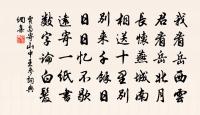 我看岳西雲
君看岳北月
長懷燕城南
相送十里別
別来千餘日
日日忆不歇
遠寄一紙書
數字論白髮
賈島寄山中王参詞典
網集